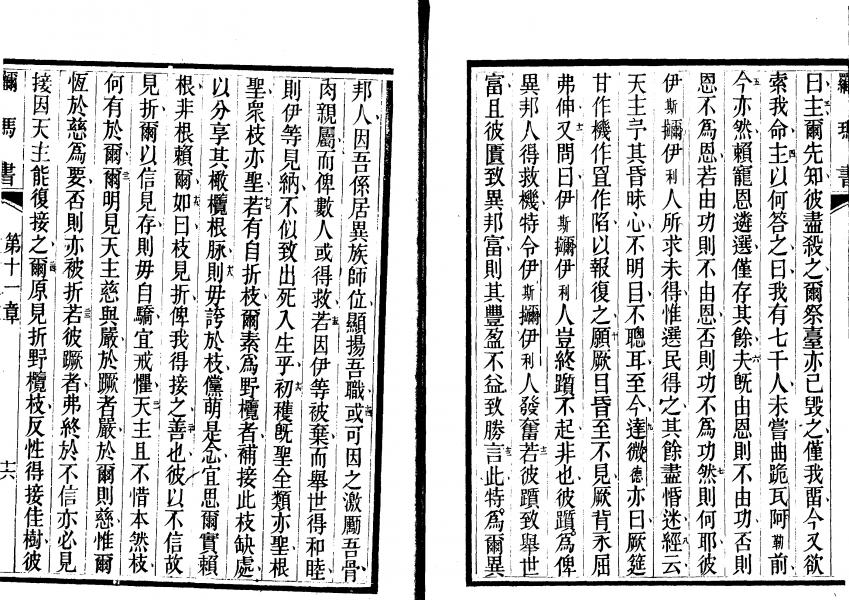 羅瑪書
曰主爾先知彼盡殺之爾祭臺亦已毀之僅我畱今又欲
索我命主以何答之曰我有七千人未嘗曲跪瓦阿勒前
今亦然賴寵恩遴選僅存其餘夫旣由恩則不由功否則
恩不爲恩若由功則不由恩否則功不爲功然則何耶彼
伊斯擓伊利人所求未得惟選民得之其餘盡惛迷經云
天主予其昏昧心不明目不聰耳至今達微德亦曰厥筵
甘作機作罝作陷以報復之願厥目昏至不見厥背永屈
弗伸又問曰伊斯擓伊利人豈終躓不起非也彼躓爲俾
異邦人得救機特令伊斯擓伊利人發奮若彼躓致舉世
富且彼匱致異邦富則其豐盈不益致勝言此特爲爾異
邦人因吾係居異族師位顯揚吾職或可因之激勵吾骨
肉親屬而俾數人或得救若因伊等被棄而舉世得和睦
則伊等見納不似致出死入生乎初穫旣聖全類亦聖根
聖衆枝亦聖若有自折枝爾素爲野欖者補接此枝缺處
以分享其橄欖根脉則毋誇於枝儻萌是念宜思爾實賴
根非根賴爾如曰枝見折俾我得接之善也彼以不信故
見折爾以信見存則毋自驕宜戒懼天主且不惜本然枝
何有於爾爾明見天主慈與嚴於蹶者嚴於爾則慈惟爾
恆於慈爲要否則亦被折若彼蹶者弗終於不信亦必見
接因天主能復接之爾原見折野欖枝反性得接佳樹彼
瑪書
第十一章
十六